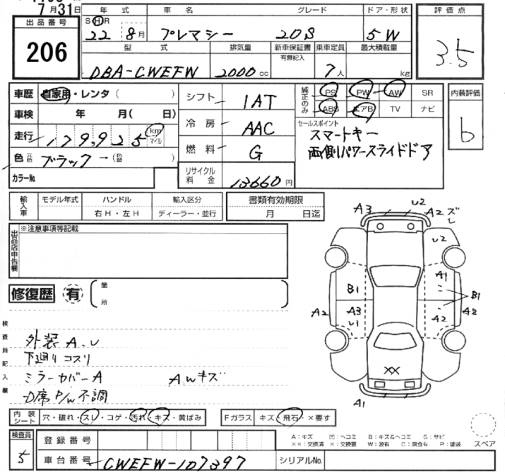 7月31
出品番号
206
年式 車名 グレード ドア・形状
S H R
22 年 8月 プレマシー 20S 5W
型式 排気量 新車保証書 有無記入 乗車定員 最大積載量
DBA-CWEFW 2000cc 7人 kg
評価点
3.5
車歴 自家用・レンタ( )
車検 年 月( 日)
走行 179,925 km マイル
色 ブラック → (色替)
カラーNo
シフト 1AT
冷房 AAC
燃料 G
リサイクル料金 13660円
純正のみ PS PW AW SR
ABS エアB TV ナビ
セールスポイント
スマートキー
両側パワースライドドア
内装評価
b
輸入車 モデル年式 ハンドル 輸入区分
年 右H・左H ディーラー・並行
書類有効期限
月 日迄
出品店申告欄
※注意事項等記載
修復歴 有 箇所
検査員記入欄
外装 A.U
下廻り コスリ
ミラーカバーA AWキズ
D席 P/W 不調
A3 U2 A2 ズレ
A2 U2
B1 B1
A2 A3 A2
U1
XX
A1 A1
内装シート 穴・破れ・スレ・コゲ・汚れ・キズ・黄ばみ
Fガラス キズ・飛石・×要す
スペア
検査員
5
登録番号
車台番号 CWEFW-107397
シリアルNo.
A:キズ U:ヘコミ B:キズ&ヘコミ S:サビ
XX:交換済 X:交換要 W:波有 C:腐食 P:塗装